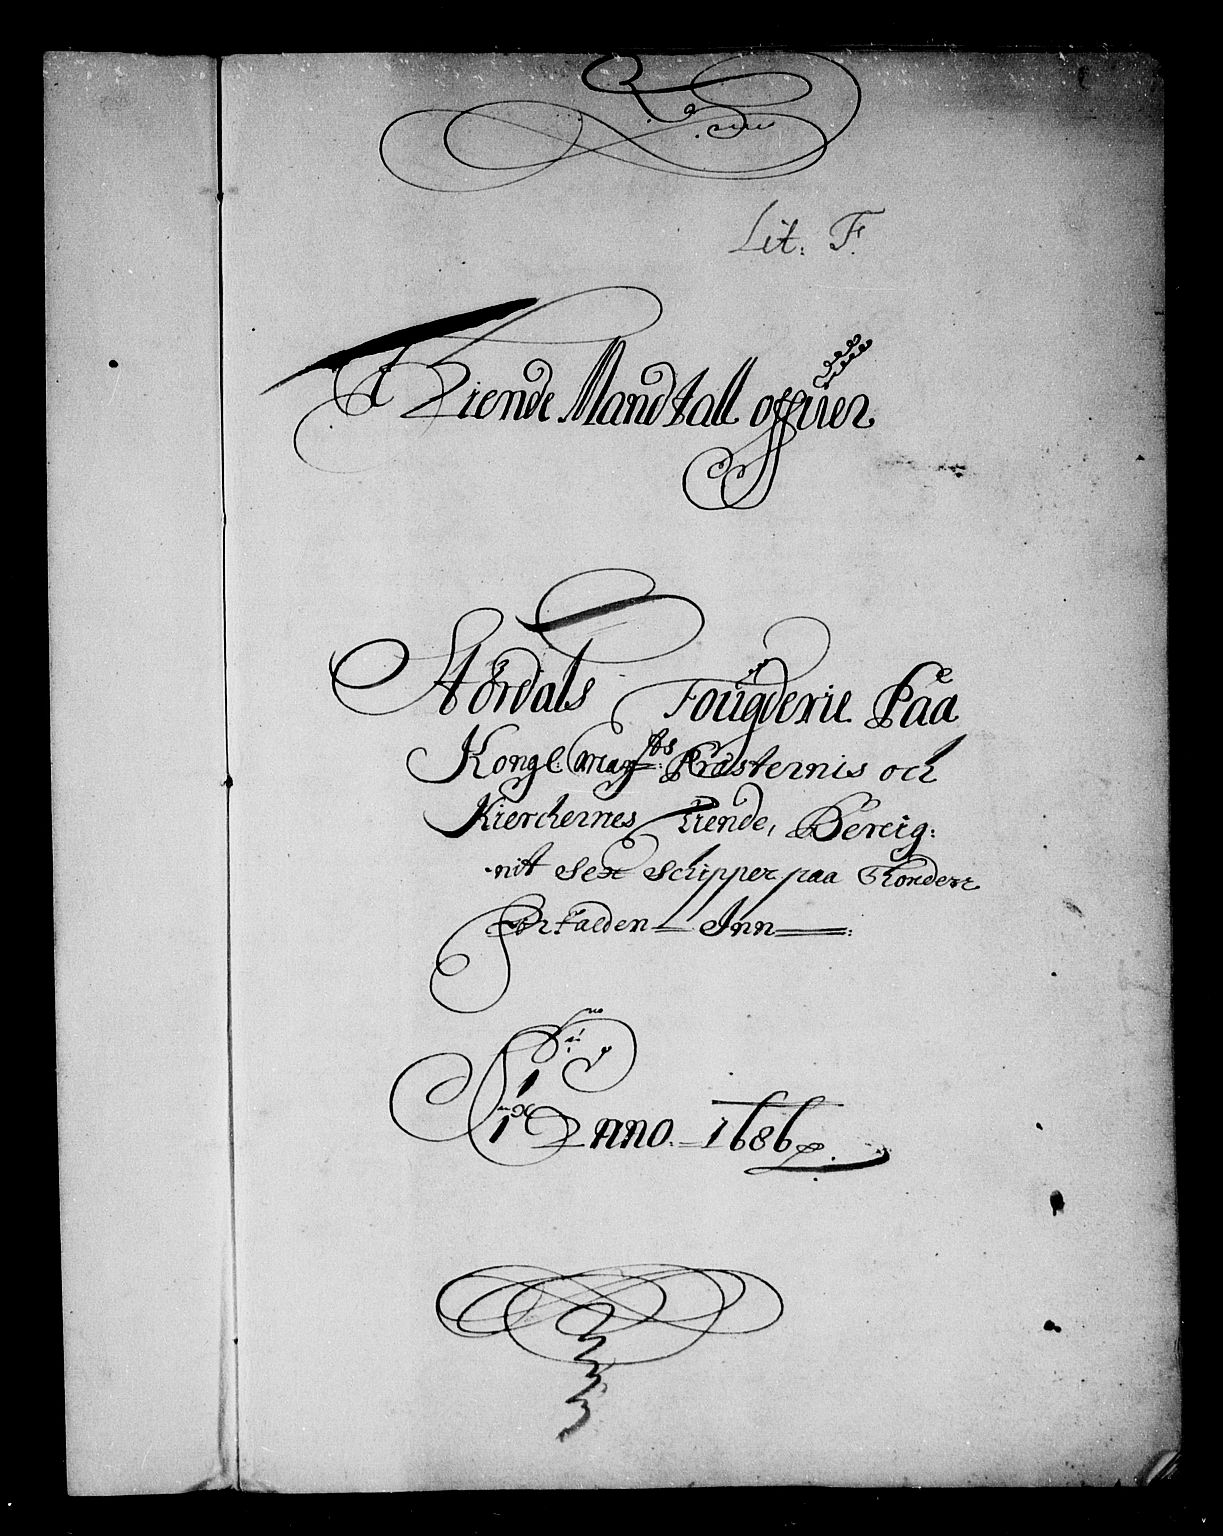 Lit. F.
Tiende Mandtall offuer
Størdals Fougderie Paa
Kongl May:ts Præsternis och
Kierchernes Tiende, Bereig:
nit Sex Schipper paa Thønder
For Talden Inn
Anno 1686